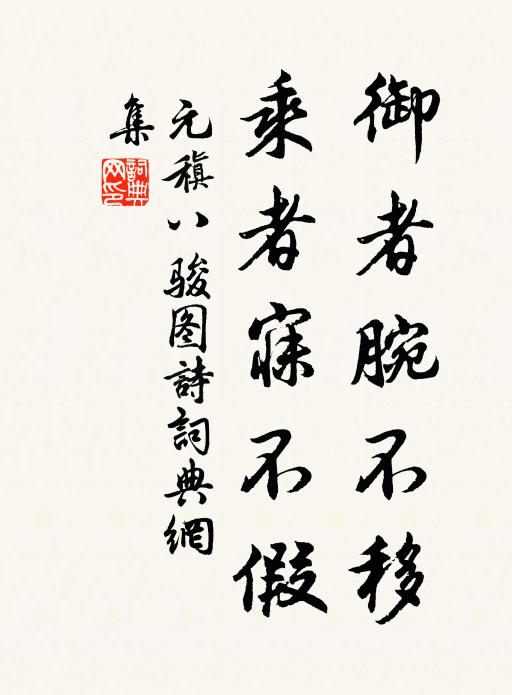 御者腕不移
乘者寐不假
元稹八骏图詩詞典網
集
詞典网印